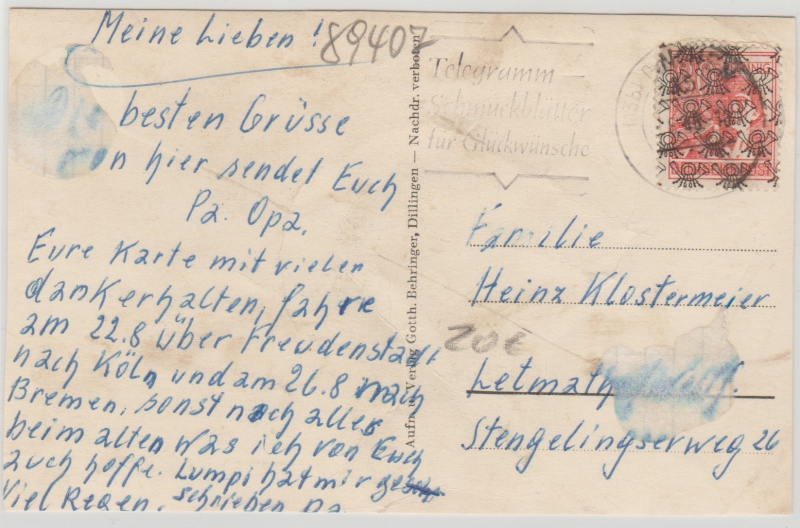 Meine Lieben!
89407
besten Grüsse
on hier sendet Euch
Pa. Opa.
Eure Karte mit vielen
dank erhalten, fahre
am 22.8 über Freudenstadt
nach Köln und am 26.8 nach
Bremen, sonst noch alles
beim alten was ich von Euch
auch hoffe. Lumpi hat mir
Viel Regen, schrieben Pa
Aufn. u. Verlag Gotth. Behringer, Dillingen — Nachdr. verboten
Telegramm
Schmuckblätter
für Glückwünsche
Familie
Heinz Klostermeier
20€
Letmathe
Stengelingserweg 26